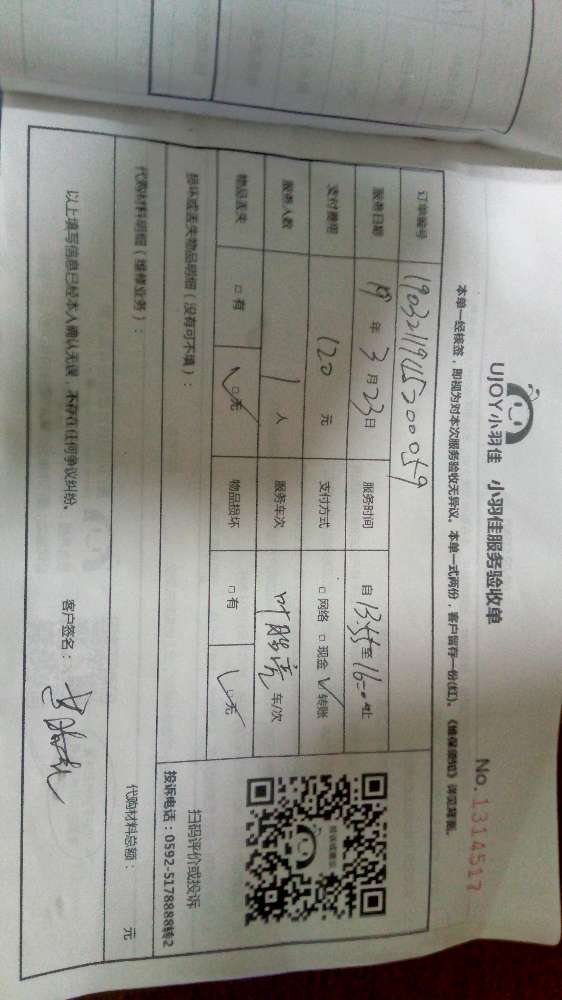 UJOY小羽佳 小羽佳服务验收单
No.1314517
本单一经核签，即视为对本次服务验收无异议。本单一式两份，客户留存一份(红)。《维保须知》详见背面。
订单编号 190321191520059
服务日期 19年3月23日 服务时间 自13:55至16:00止
支付费用 120元 支付方式 □网络 □现金 ✓转账
服务人数 1人 服务车次 叶胜亮 车/次
物品丢失 □有 ✓□无 物品损坏 □有 ✓□无
损坏或丢失物品明细（没有可不填）：
扫码评价或投诉
投诉电话：0592-5178888转2
代购材料明细（维修业务）： 代购材料总额： 元
以上填写信息已经本人确认无误，不存在任何争议纠纷。 客户签名：